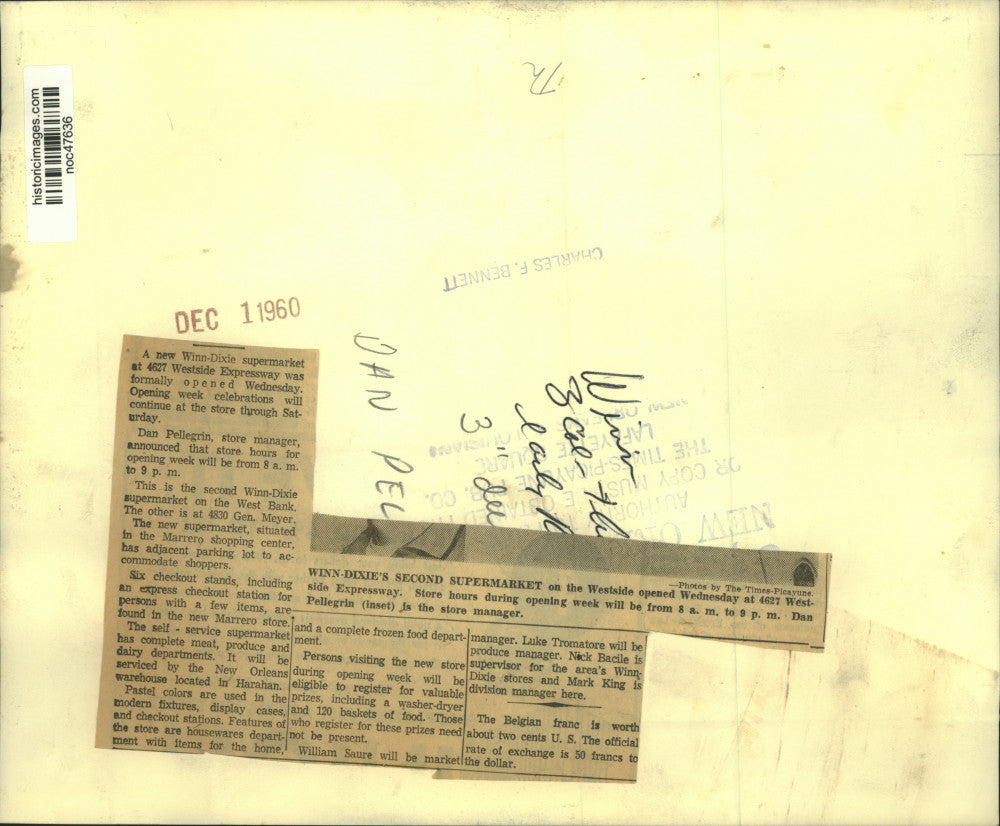 historicimages.com
noc47636
CHARLES F. BENNETT
DEC 1 1960
DAN PEL
Winn
3"
A new Winn-Dixie supermarket
at 4627 Westside Expressway was
formally opened Wednesday.
Opening week celebrations will
continue at the store through Sat-
urday.
Dan Pellegrin, store manager,
announced that store hours for
opening week will be from 8 a. m.
to 9 p. m.
This is the second Winn-Dixie
supermarket on the West Bank.
The other is at 4830 Gen. Meyer.
The new supermarket, situated
in the Marrero shopping center,
has adjacent parking lot to ac-
commodate shoppers.
Six checkout stands, including
an express checkout station for
persons with a few items, are
found in the new Marrero store.
The self - service supermarket
has complete meat, produce and
dairy departments. It will be
serviced by the New Orleans
warehouse located in Harahan.
Pastel colors are used in the
modern fixtures, display cases,
and checkout stations. Features of
the store are housewares depart-
ment with items for the home,
and a complete frozen food depart-
ment.
Persons visiting the new store
during opening week will be
eligible to register for valuable
prizes, including a washer-dryer
and 120 baskets of food. Those
who register for these prizes need
not be present.
William Saure will be market
manager. Luke Tromatore will be
produce manager. Nick Bacile is
supervisor for the area's Winn-
Dixie stores and Mark King is
division manager here.
The Belgian franc is worth
about two cents U. S. The official
rate of exchange is 50 francs to
the dollar.
—Photos by The Times-Picayune.
WINN-DIXIE'S SECOND SUPERMARKET on the Westside opened Wednesday at 4627 West-
side Expressway. Store hours during opening week will be from 8 a. m. to 9 p. m. Dan
Pellegrin (inset) is the store manager.